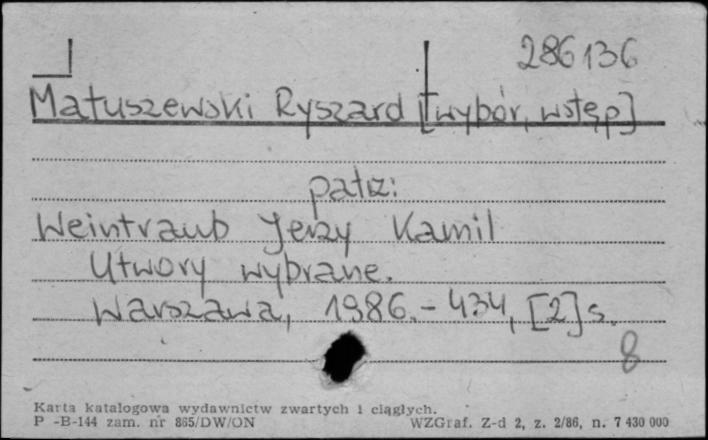 286136
Matuszewski Ryszard [wybór, wstęp]
patrz:
Weintraub Jerzy Kamil
Utwory wybrane.
Warszawa, 1986. - 434, [2] s.
8
Karta katalogowa wydawnictw zwartych i ciągłych.
P -B-144 zam. nr 865/DW/ON WZGraf. Z-d 2, z. 2/86, n. 7 430 000